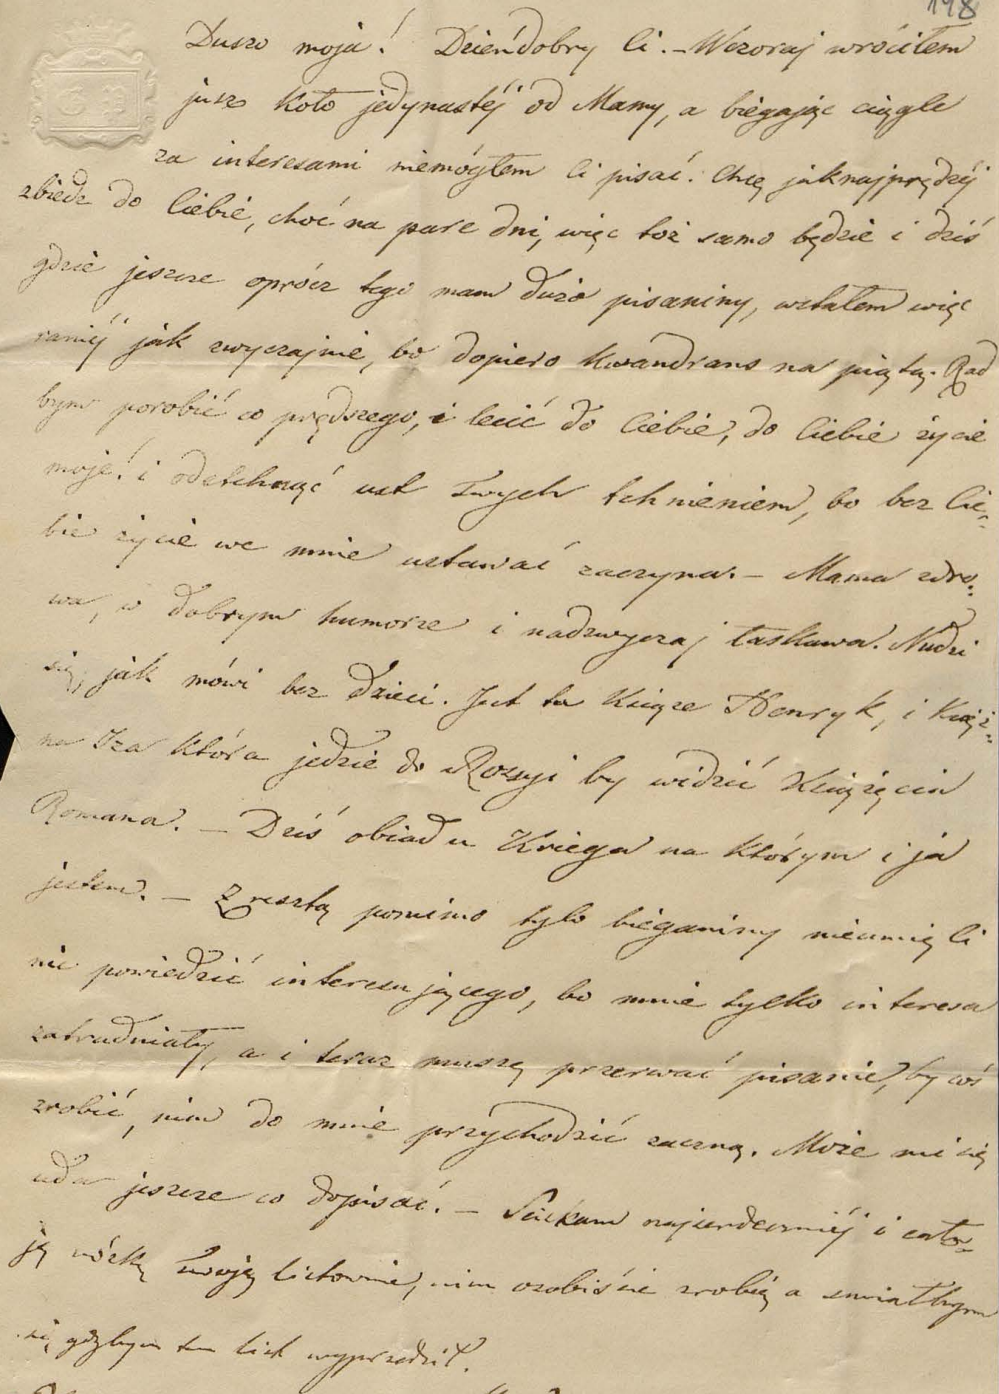 198
Duszo moja! Dzieńdobry Ci. – Wczoraj wróciłem
jusz koło jedynastéj od Mamy, a biegając ciągle
za interesami niemógłem Ci pisać. Chcę jaknajprędzéj
zbiedz do Ciebie, choć na pare dni, więc toż samo będzie i dziś
gdzie jeszcze oprócz tego mam dużo pisaniny, wstałem więc
raniéj jak zwyczajnie, bo dopiero kwandrans na piątą. Rad
bym porobić co prędszego, i lecić do Ciebie, do Ciebie życie
moje! i odetchnąć ust Twych tchnieniem, bo bez Cie-
bie życie we mnie ustawać zaczyna. – Mama zdro-
wa, w dobrym humorze i nadzwyczaj łaskawa. Nudzi
się, jak mówi bez dzieci. Jest tu Książe Henryk, i Księż-
na Iza która jedzie do Rossyi by widzić Książęcia
Romana. – Dziś obiad u Kriega na którym i ja
jestem. – Zresztą pomimo tylo biéganiny nieumię Ci
nic powiedzić interesującego, bo mnie tylko interesa
zatrudniały, a i teraz muszę przerwać pisanie, by coś
zrobić, nim do mnie przychodzić zaczną. Może mi się
uda jeszcze co dopisać. – Sciskam najserdeczniéj i cału-
ję rączkę Twoję listownie, nim osobiście zrobię a smiałbym
się gdybym ten list wyprzedził.